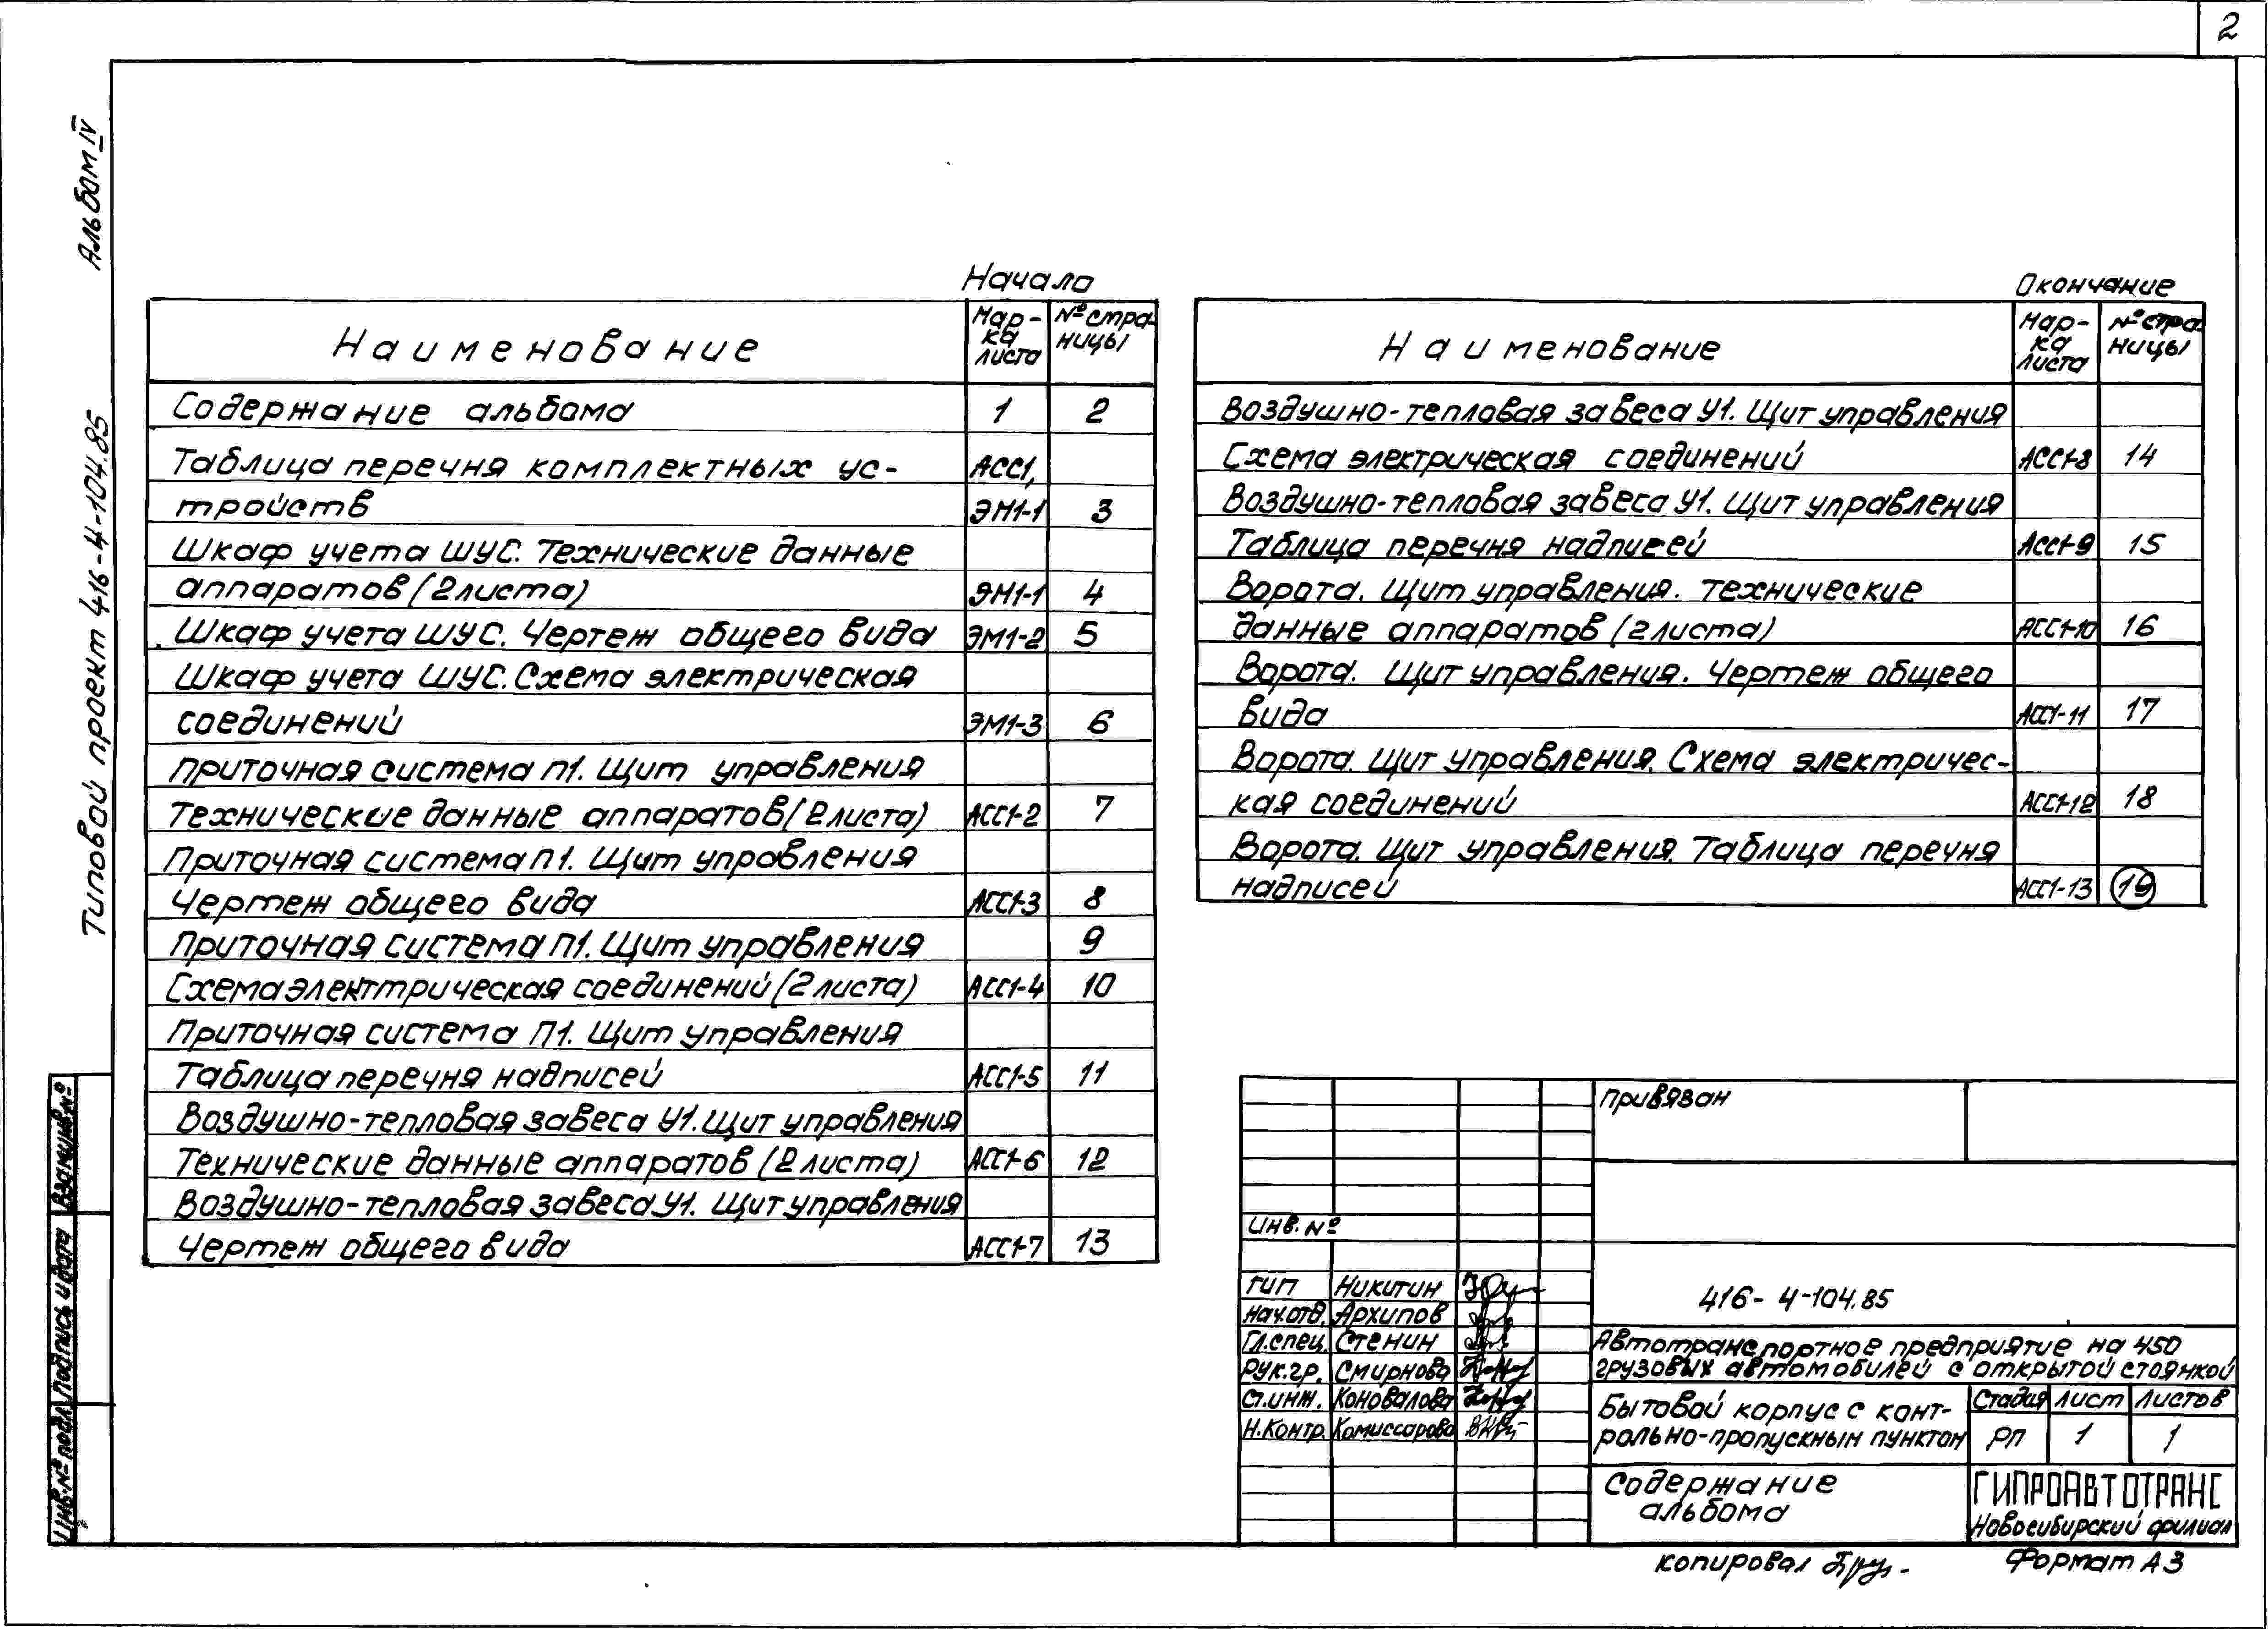 2
Альбом IV
Типовой проект 416-4-104.85
Начало
Наименование
Мар-
ка
листа
№ стра-
ницы
Содержание альбома 1 2
Таблица перечня комплектных ус- АСС1,
тройств ЭМ1-1 3
Шкаф учета ШУС. Технические данные
аппаратов (2 листа) ЭМ1-1 4
Шкаф учета ШУС. Чертеж общего вида ЭМ1-2 5
Шкаф учета ШУС. Схема электрическая
соединений ЭМ1-3 6
Приточная система П1. Щит управления
Технические данные аппаратов (2 листа) АСС1-2 7
Приточная система П1. Щит управления
Чертеж общего вида АСС1-3 8
Приточная система П1. Щит управления 9
Схема электтрическая соединений (2 листа) АСС1-4 10
Приточная система П1. Щит управления
Таблица перечня надписей АСС1-5 11
Воздушно-тепловая завеса У1. Щит управления
Технические данные аппаратов (2 листа) АСС1-6 12
Воздушно-тепловая завеса У1. Щит управления
Чертеж общего вида АСС1-7 13
Окончание
Наименование
Мар-
ка
листа
№ стра-
ницы
Воздушно-тепловая завеса У1. Щит управления
Схема электрическая соединений АСС1-8 14
Воздушно-тепловая завеса У1. Щит управления
Таблица перечня надписей АСС1-9 15
Ворота. Щит управления. Технические
данные аппаратов (2 листа) АСС1-10 16
Ворота. Щит управления. Чертеж общего
вида АСС1-11 17
Ворота. Щит управления. Схема электричес-
кая соединений АСС1-12 18
Ворота. Щит управления. Таблица перечня
надписей АСС1-13 19
Привязан
Инв. №
ГИП Никитин
Нач.отд. Архипов
Гл.спец. Стенин
Рук.гр. Смирнова
Ст.инж. Коновалова
Н.контр. Комиссарова
416-4-104.85
Автотранспортное предприятие на 450
грузовых автомобилей с открытой стоянкой
Бытовой корпус с конт-
рольно-пропускным пунктом
Стадия Лист Листов
РП 1 1
Содержание
альбома
ГИПРОАВТОТРАНС
Новосибирский филиал
Копировал
Формат А3
Взам.инв.№
Подпись и дата
Инв.№ подл.